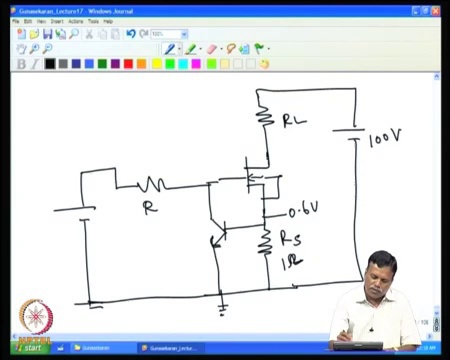 Gunasekaran_Lecture17 - Windows Journal
File Edit View Insert Actions Tools Help
100%
B I
RL
100V
R
0.6V
RS
1Ω
start
Gunasekaran
Gunasekaran_Lectu...